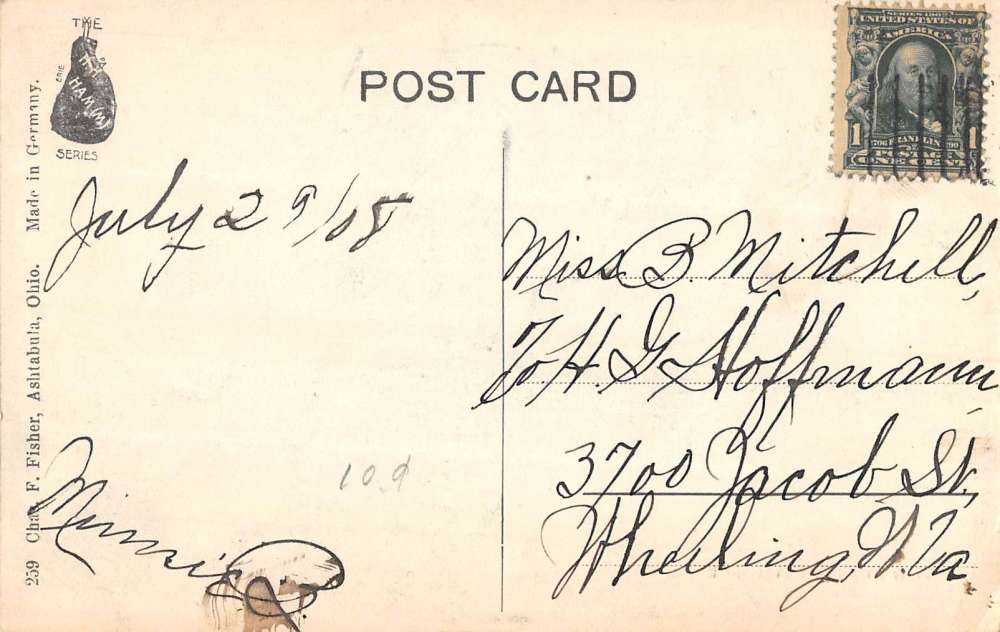 THE
ERIE PA
HAMM
SERIES
POST CARD
SERIES 1902
UNITED STATES OF
AMERICA
1 1
1706 FRANKLIN 1790
POSTAGE
ONE CENT
259 Chas. F. Fisher, Ashtabula, Ohio. Made in Germany.
July 29/08
Miss B. Mitchell,
H. G. Hoffmann
3700 Jacob St.,
Wheeling, W Va
10d
Minnie